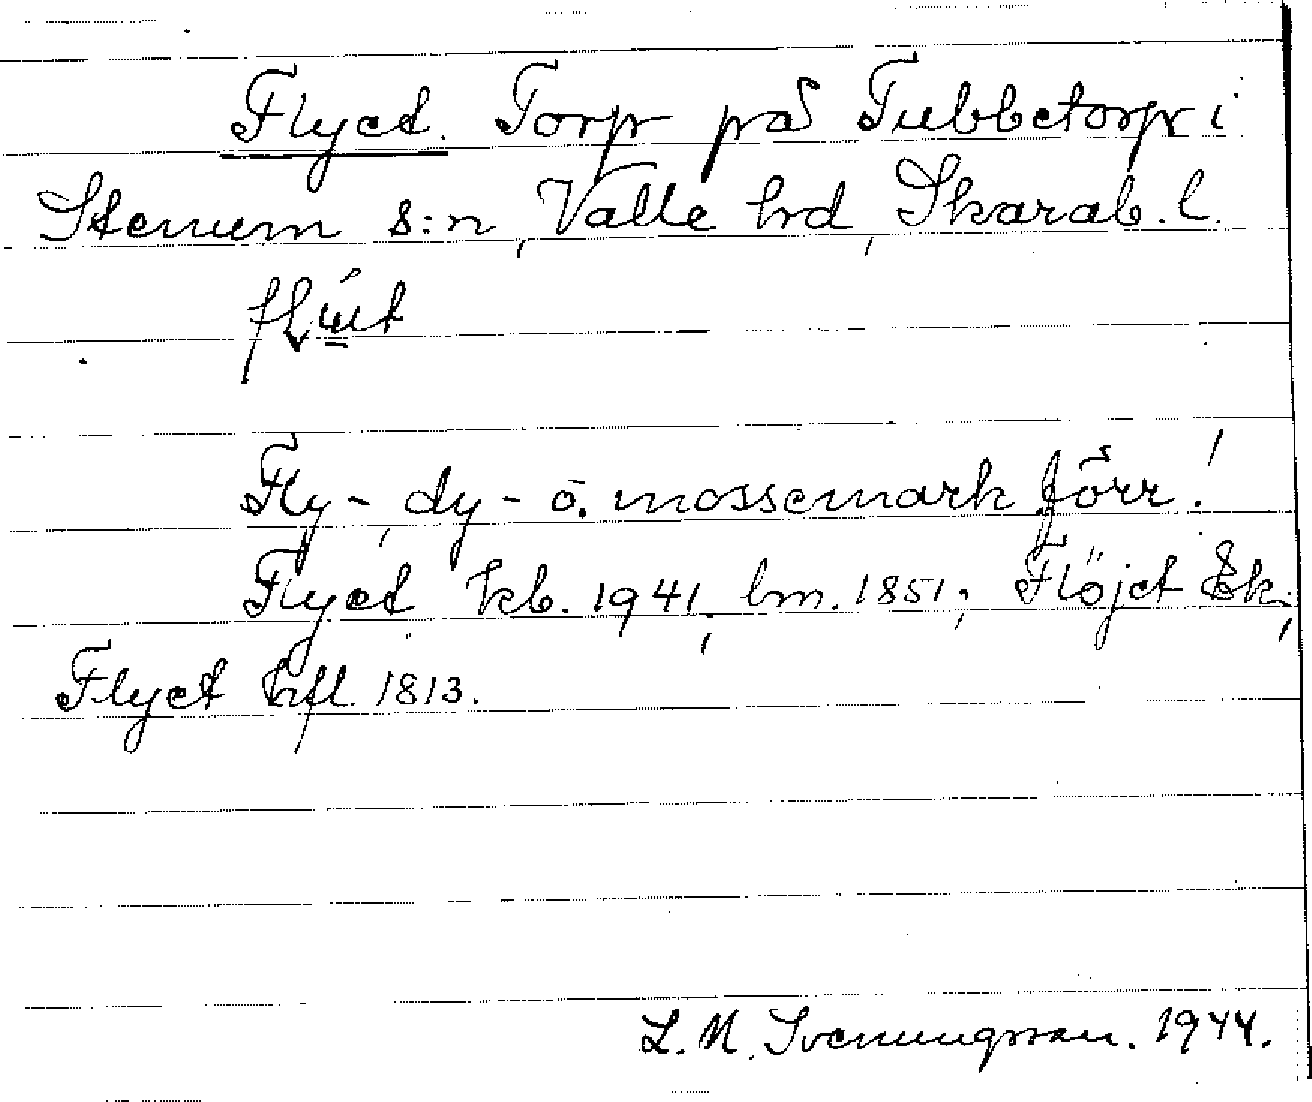 Flyet. Torp på Tubbetorp i
Stenum s:n, Valle hrd, Skarab. l.
Fly-, dy- o. mossemark förr!
Flyet kb. 1941, lm. 1851; Flöjet Ek;
Flyet hfl. 1813.
L. M. Svenungsson. 1944.